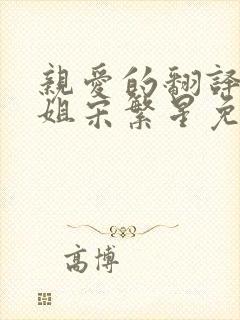 親愛的翻譯
姐宋繁星免
高博